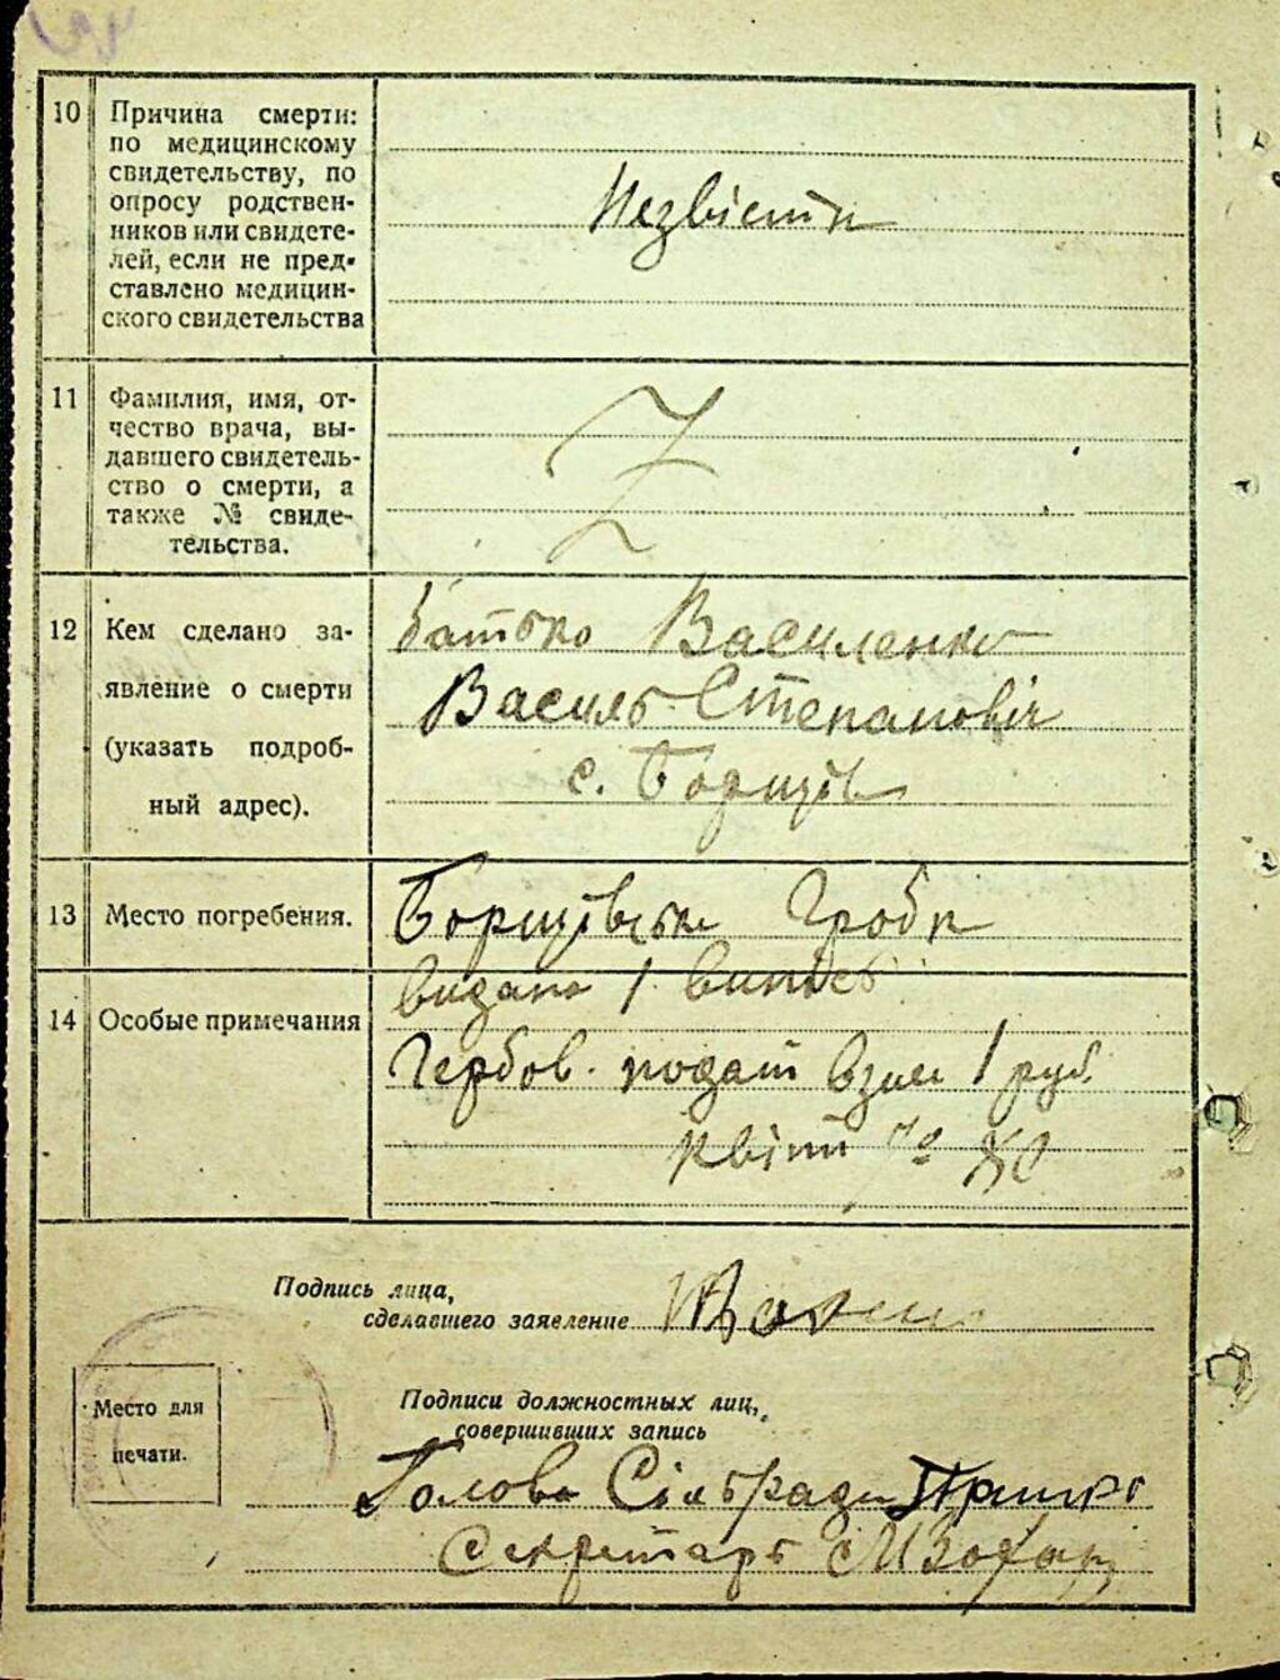 10 Причина смерти:
по медицинскому
свидетельству, по
опросу родствен-
ников или свидете-
лей, если не пред-
ставлено медицин-
ского свидетельства
11 Фамилия, имя, от-
чество врача, вы-
давшего свидетель-
ство о смерти, а
также № свиде-
тельства.
Z
12 Кем сделано за-
явление о смерти
(указать подроб-
ный адрес).
батько Василенко
Василь Степанович
с. Борщів
13 Место погребения.
Борщівські Гроби
14 Особые примечания
видано 1
Гербов. подат 1 руб.
Квіт
Подпись лица,
сделавшего заявление
Место для
печати.
Подписи должностных лиц,
совершивших запись
Голова Сільради
Секретарь